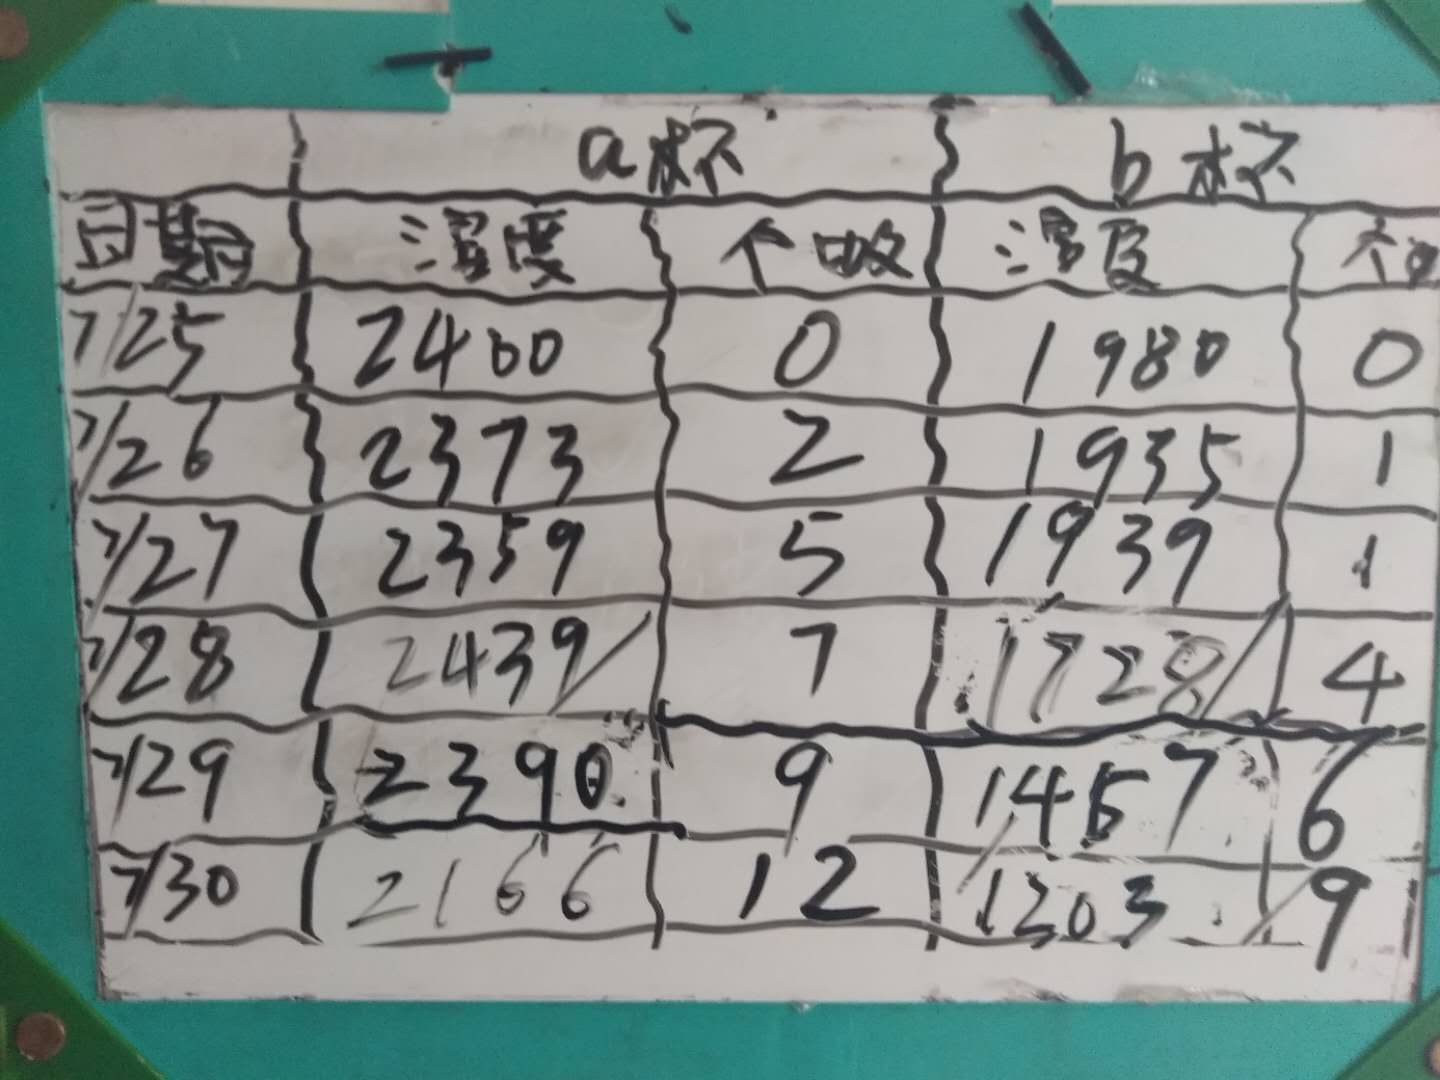 a杯 b杯
日期 湿度 个数 湿度 个
7/25 2400 0 1980 0
7/26 2373 2 1935 1
7/27 2359 5 1939 1
7/28 2439 7 1728 4
7/29 2390 9 1457 6
7/30 2166 12 1203 9